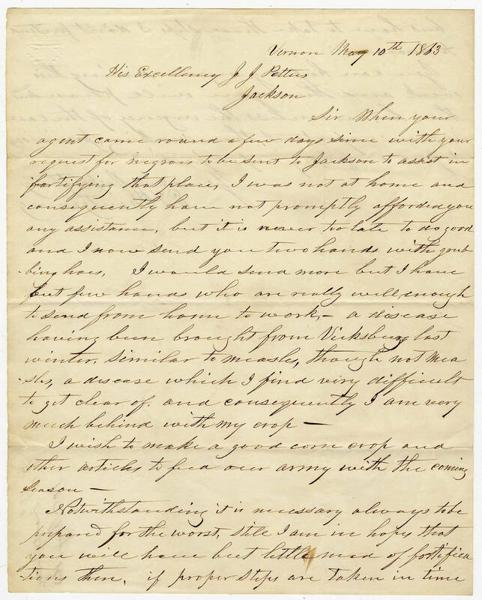 Vernon May 10th 1863
His Excellency J. J. Pettus
Jackson
Sir When your
agent came round a few days since with your
request for negroes to be sent to Jackson to assist in
fortifying that place, I was not at home and
consequently have not promptly afforded you
any assistance, but it is never too late to do good
and I now send you two hands with grub
bing hoes. I would send more but I have
but few hands who are really well enough
to send from home to work, – a disease
having been brought from Vicksburg last
winter, similar to measles, though not mea
sles, a disease which I find very difficult
to get clear of, and consequently I am very
much behind with my crop –
I wish to make a good corn crop and
other articles to feed our army with the coming
season –
Notwithstanding it is necessary always to be
prepared for the worst, still I am in hopes that
you will have but little need of fortifica
tions then, if proper steps are taken in time